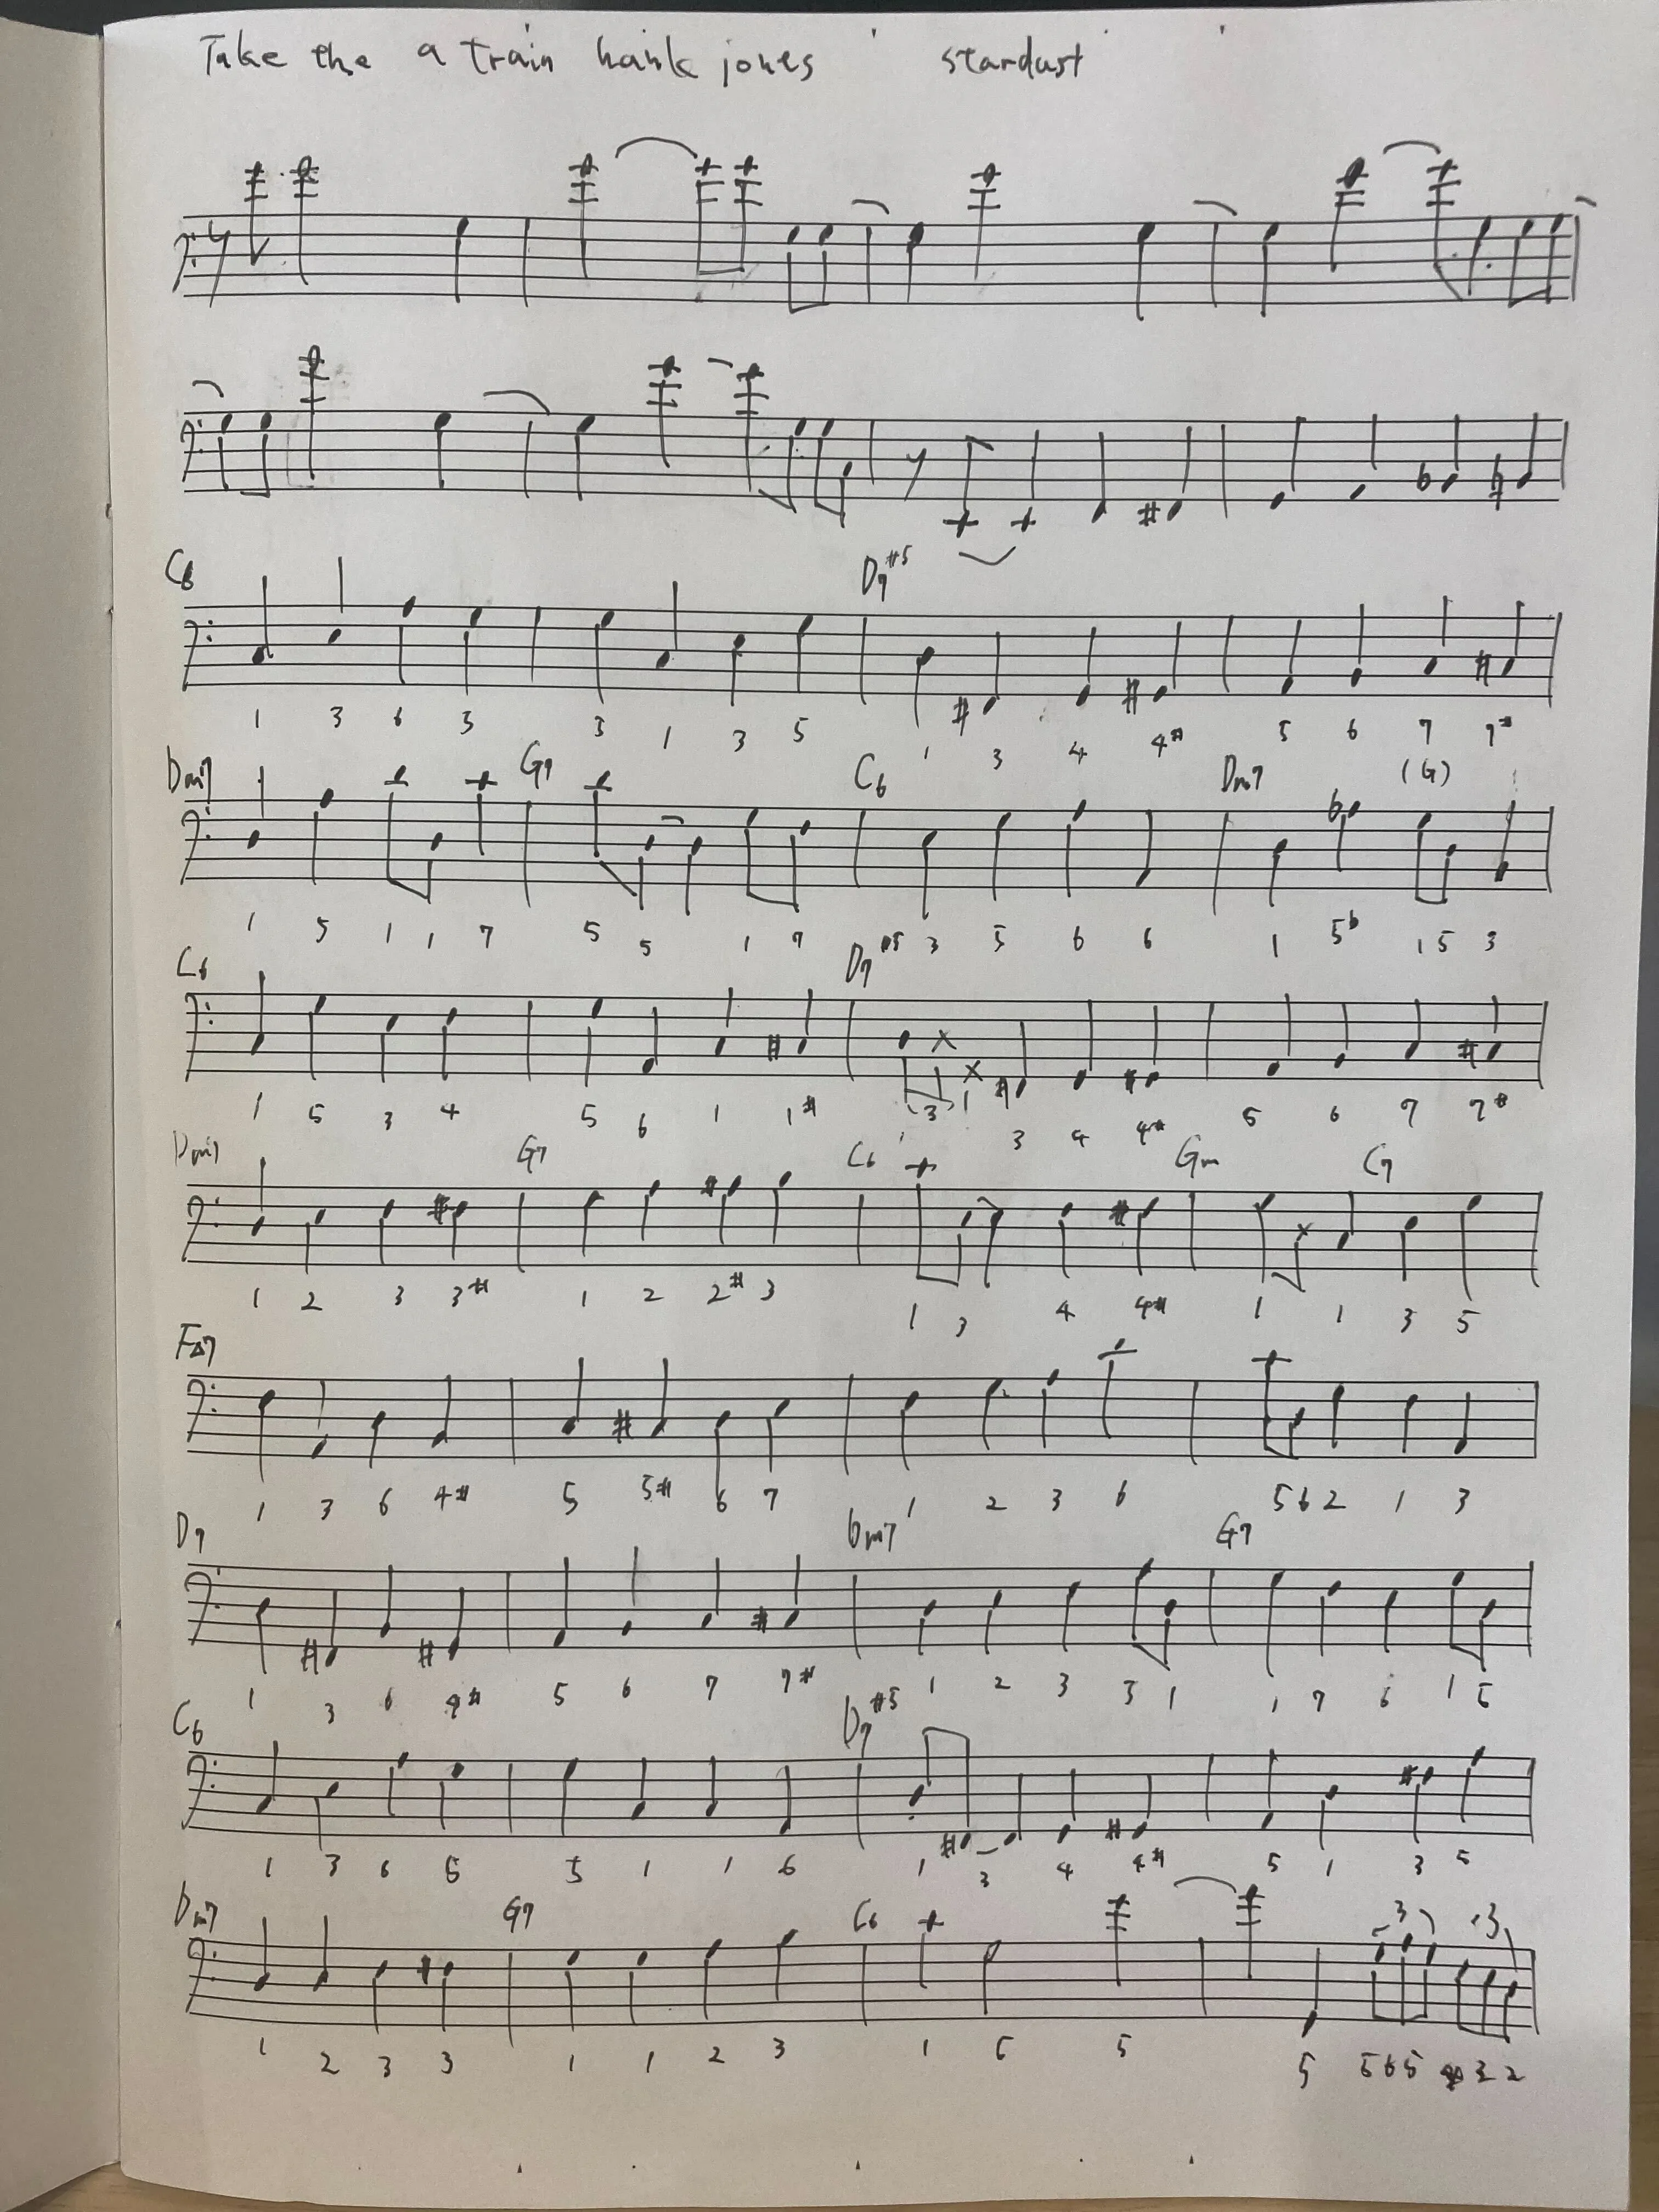 Take the a train hank jones stardust
C6 D7#5
1 3 6 5 3 1 3 5 1 3 4 4# 5 6 7 7#
Dm7 G7 C6 Dm7 (G)
1 5 1 1 7 5 5 1 7 3 5 6 6 1 5b 1 5 3
C6 D7#5
1 5 3 4 5 6 1 1# (3) 1 3 4 4# 5 6 7 7#
Dm7 G7 C6 Gm C7
1 2 3 3# 1 2 2# 3 1 3 4 4# 1 1 3 5
F△7
1 3 6 4# 5 5# 6 7 1 2 3 6 5 6 2 1 3
D7 Dm7 G7
1 3 6 4# 5 6 7 7# 1 2 3 5 1 1 7 6 1 5
C6 D7#5
1 3 6 5 5 1 1 6 1 3 4 4# 5 1 3 5
Dm7 G7 C6 3 3
1 2 3 3 1 1 2 3 1 5 5 5 5 6 5 3 2